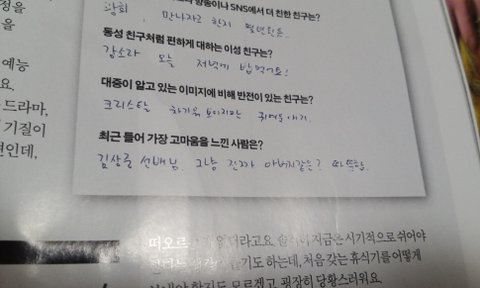 SNS에서 더 친한 친구는?
정을
을
광희, 만나자고 한지
동성 친구처럼 편하게 대하는 이성 친구는?
예능
강소라 오늘 저녁에 밥먹어요!
요.
대중이 알고 있는 이미지에 비해 반전이 있는 친구는?
드라마,
크리스탈 차가워 보이지만 귀여운 애기.
기질이
최근 들어 가장 고마움을 느낀 사람은?
변인데,
김상중 선배님. 그냥 진짜 아버지같은? 따뜻함.
떠오르 더라고요. 지금은 시기적으로 쉬어야
기도 하는데, 처음 갖는 휴식기를 어떻게
할지도 모르겠고 굉장히 당황스러워요.